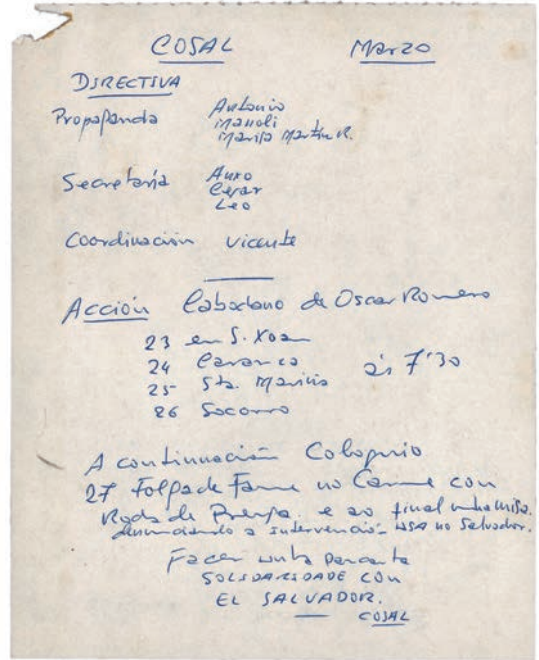 COSAL Marzo
DIRECTIVA
Propaganda Antonio
Manoli
Marisa Martín R.
Secretaría Auxo
Cesar
Leo
Coordinación Vicente
Acción Cabodano de Oscar Romero
23 en S. Xoan
24 Caranza ás 7'30
25 Sta. Mariña
26 Socorro
A continuación Coloquio
27 Folga de Fame no Carme con
Roda de Prensa e ao final unha misa.
denunciando a intervención USA no Salvador.
Facer unha pancarta
SOLIDARIDADE CON
EL SALVADOR.
COSAL